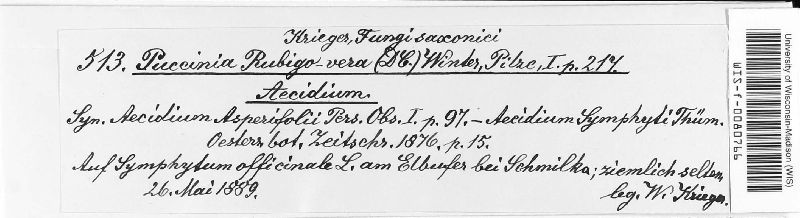 Krieger, Fungi saxonici
513. Puccinia Rubigo-vera (DC.) Winter, Pilze, I. p. 217.
Aecidium.
Syn. Aecidium Asperifolii Pers. Obs. I. p. 97. – Aecidium Symphyti Thüm.
Oesterr. bot. Zeitschr. 1876. p. 15.
Auf Symphytum officinale L. am Elbufer bei Schmilka; ziemlich selten.
26. Mai 1889.
leg. W. Krieger.
University of Wisconsin-Madison (WIS)
WIS-f-0080766